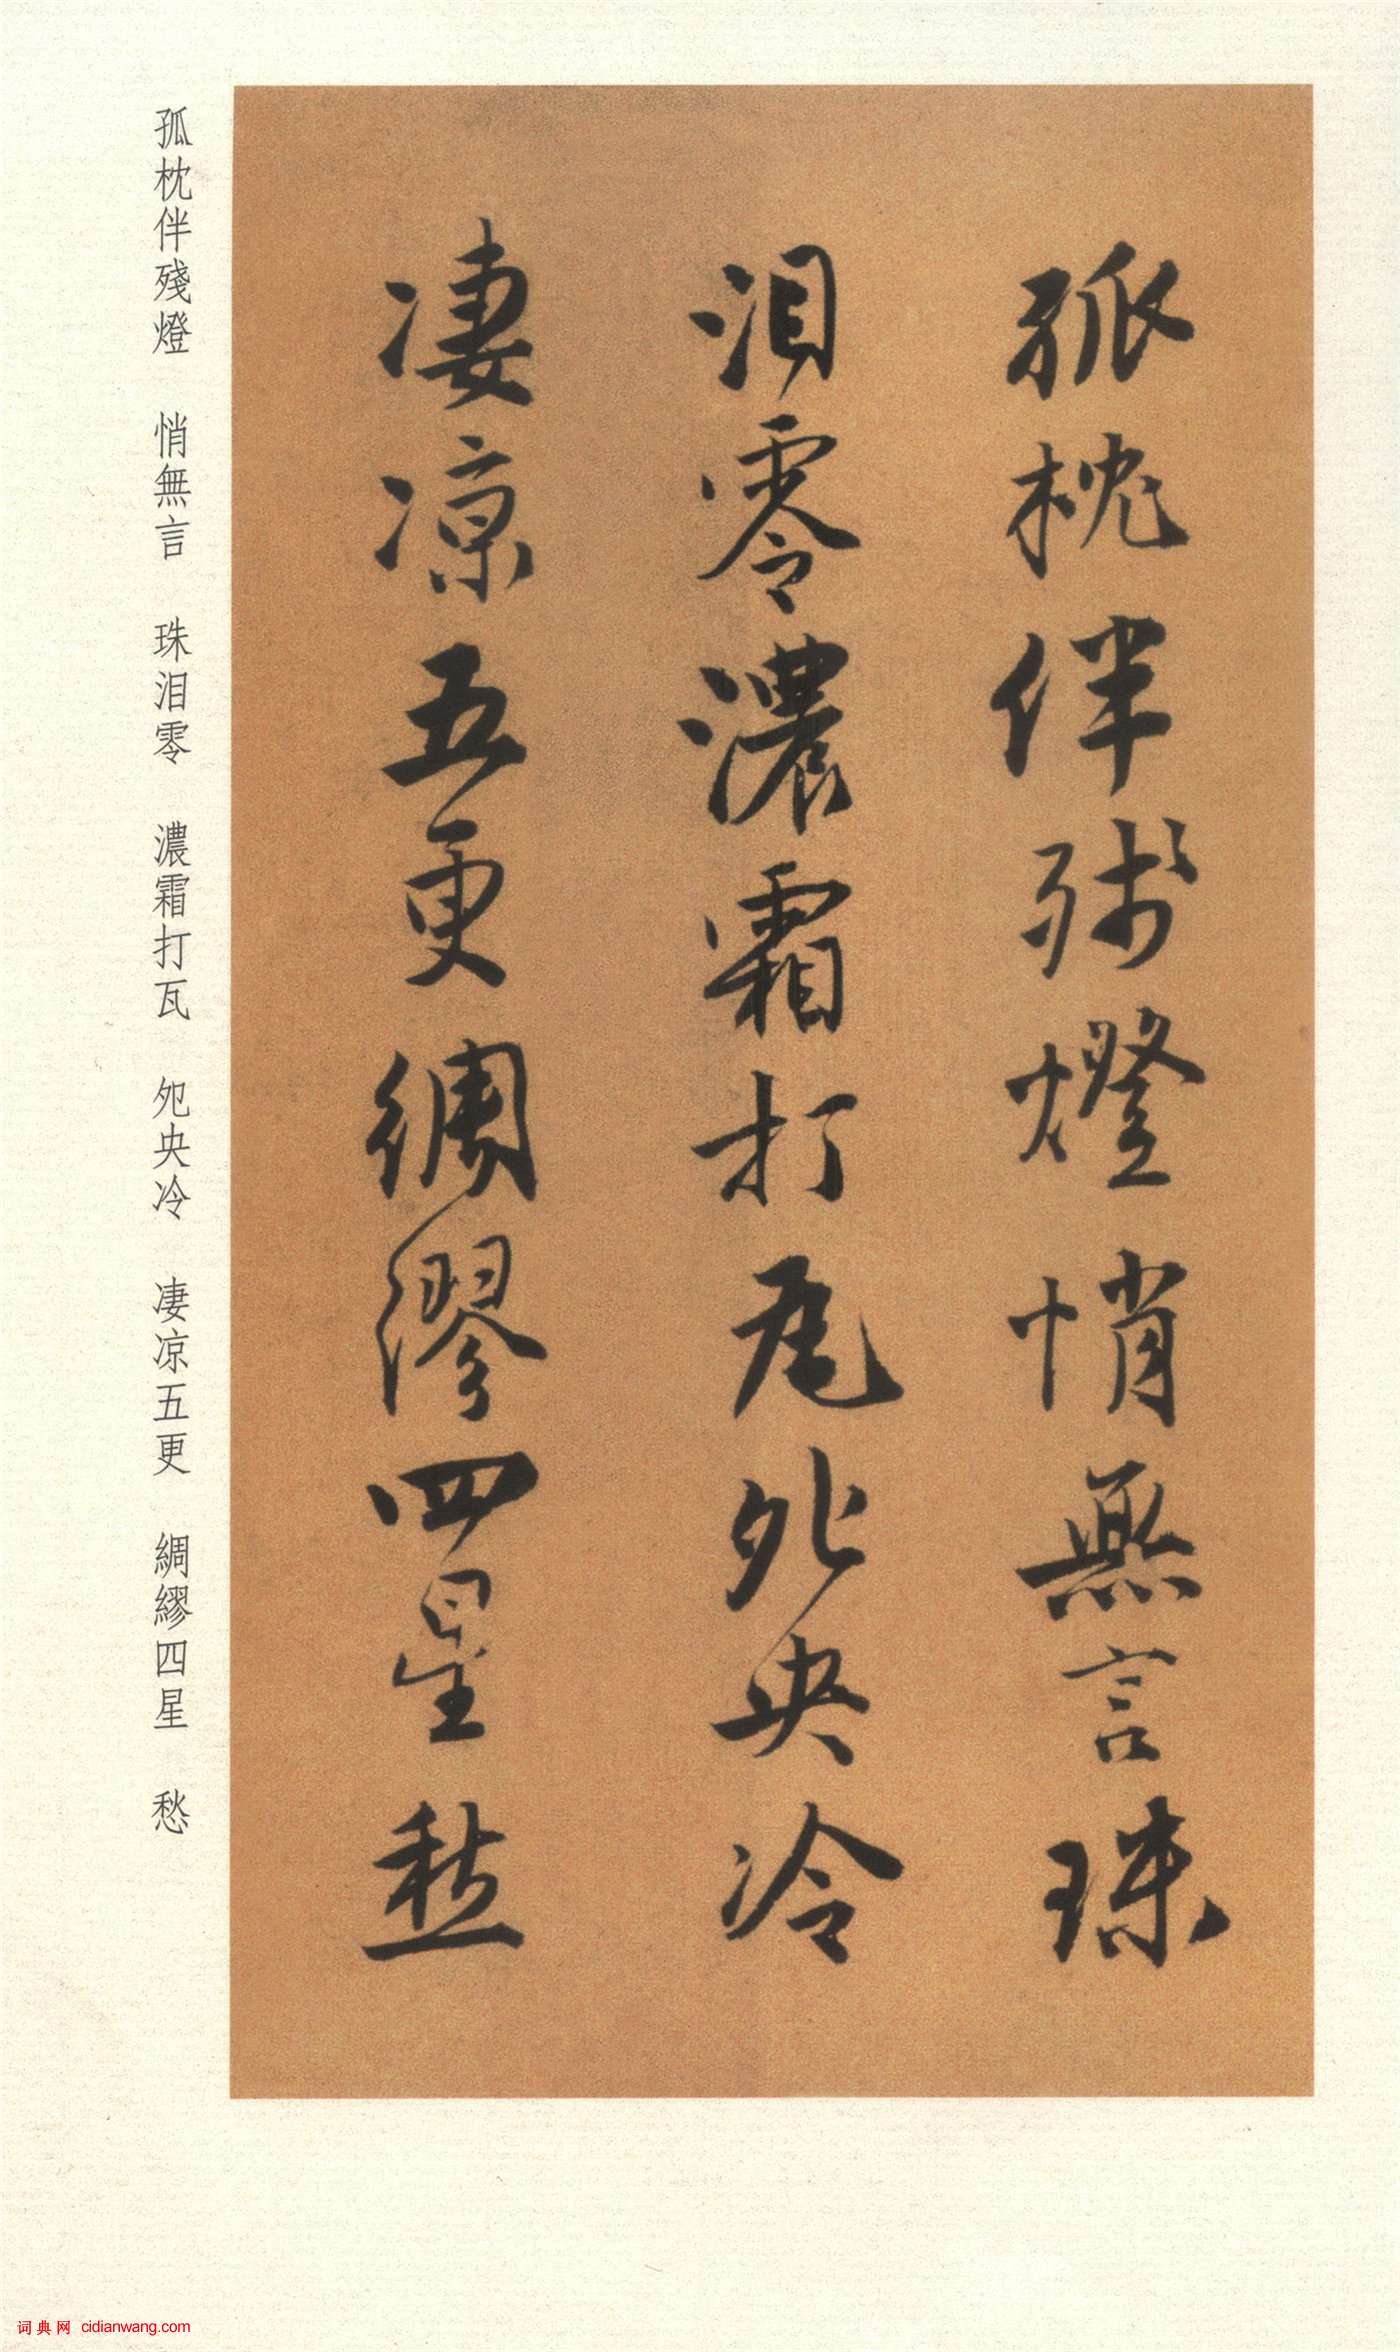 孤枕伴殘燈悄無言珠
泪零濃霜打瓦夗央冷
凄凉五更綢繆四星愁
孤枕伴殘燈　悄無言　珠泪零　濃霜打瓦　夗央冷　凄凉五更　綢繆四星　愁
词典网 cidianwang.com